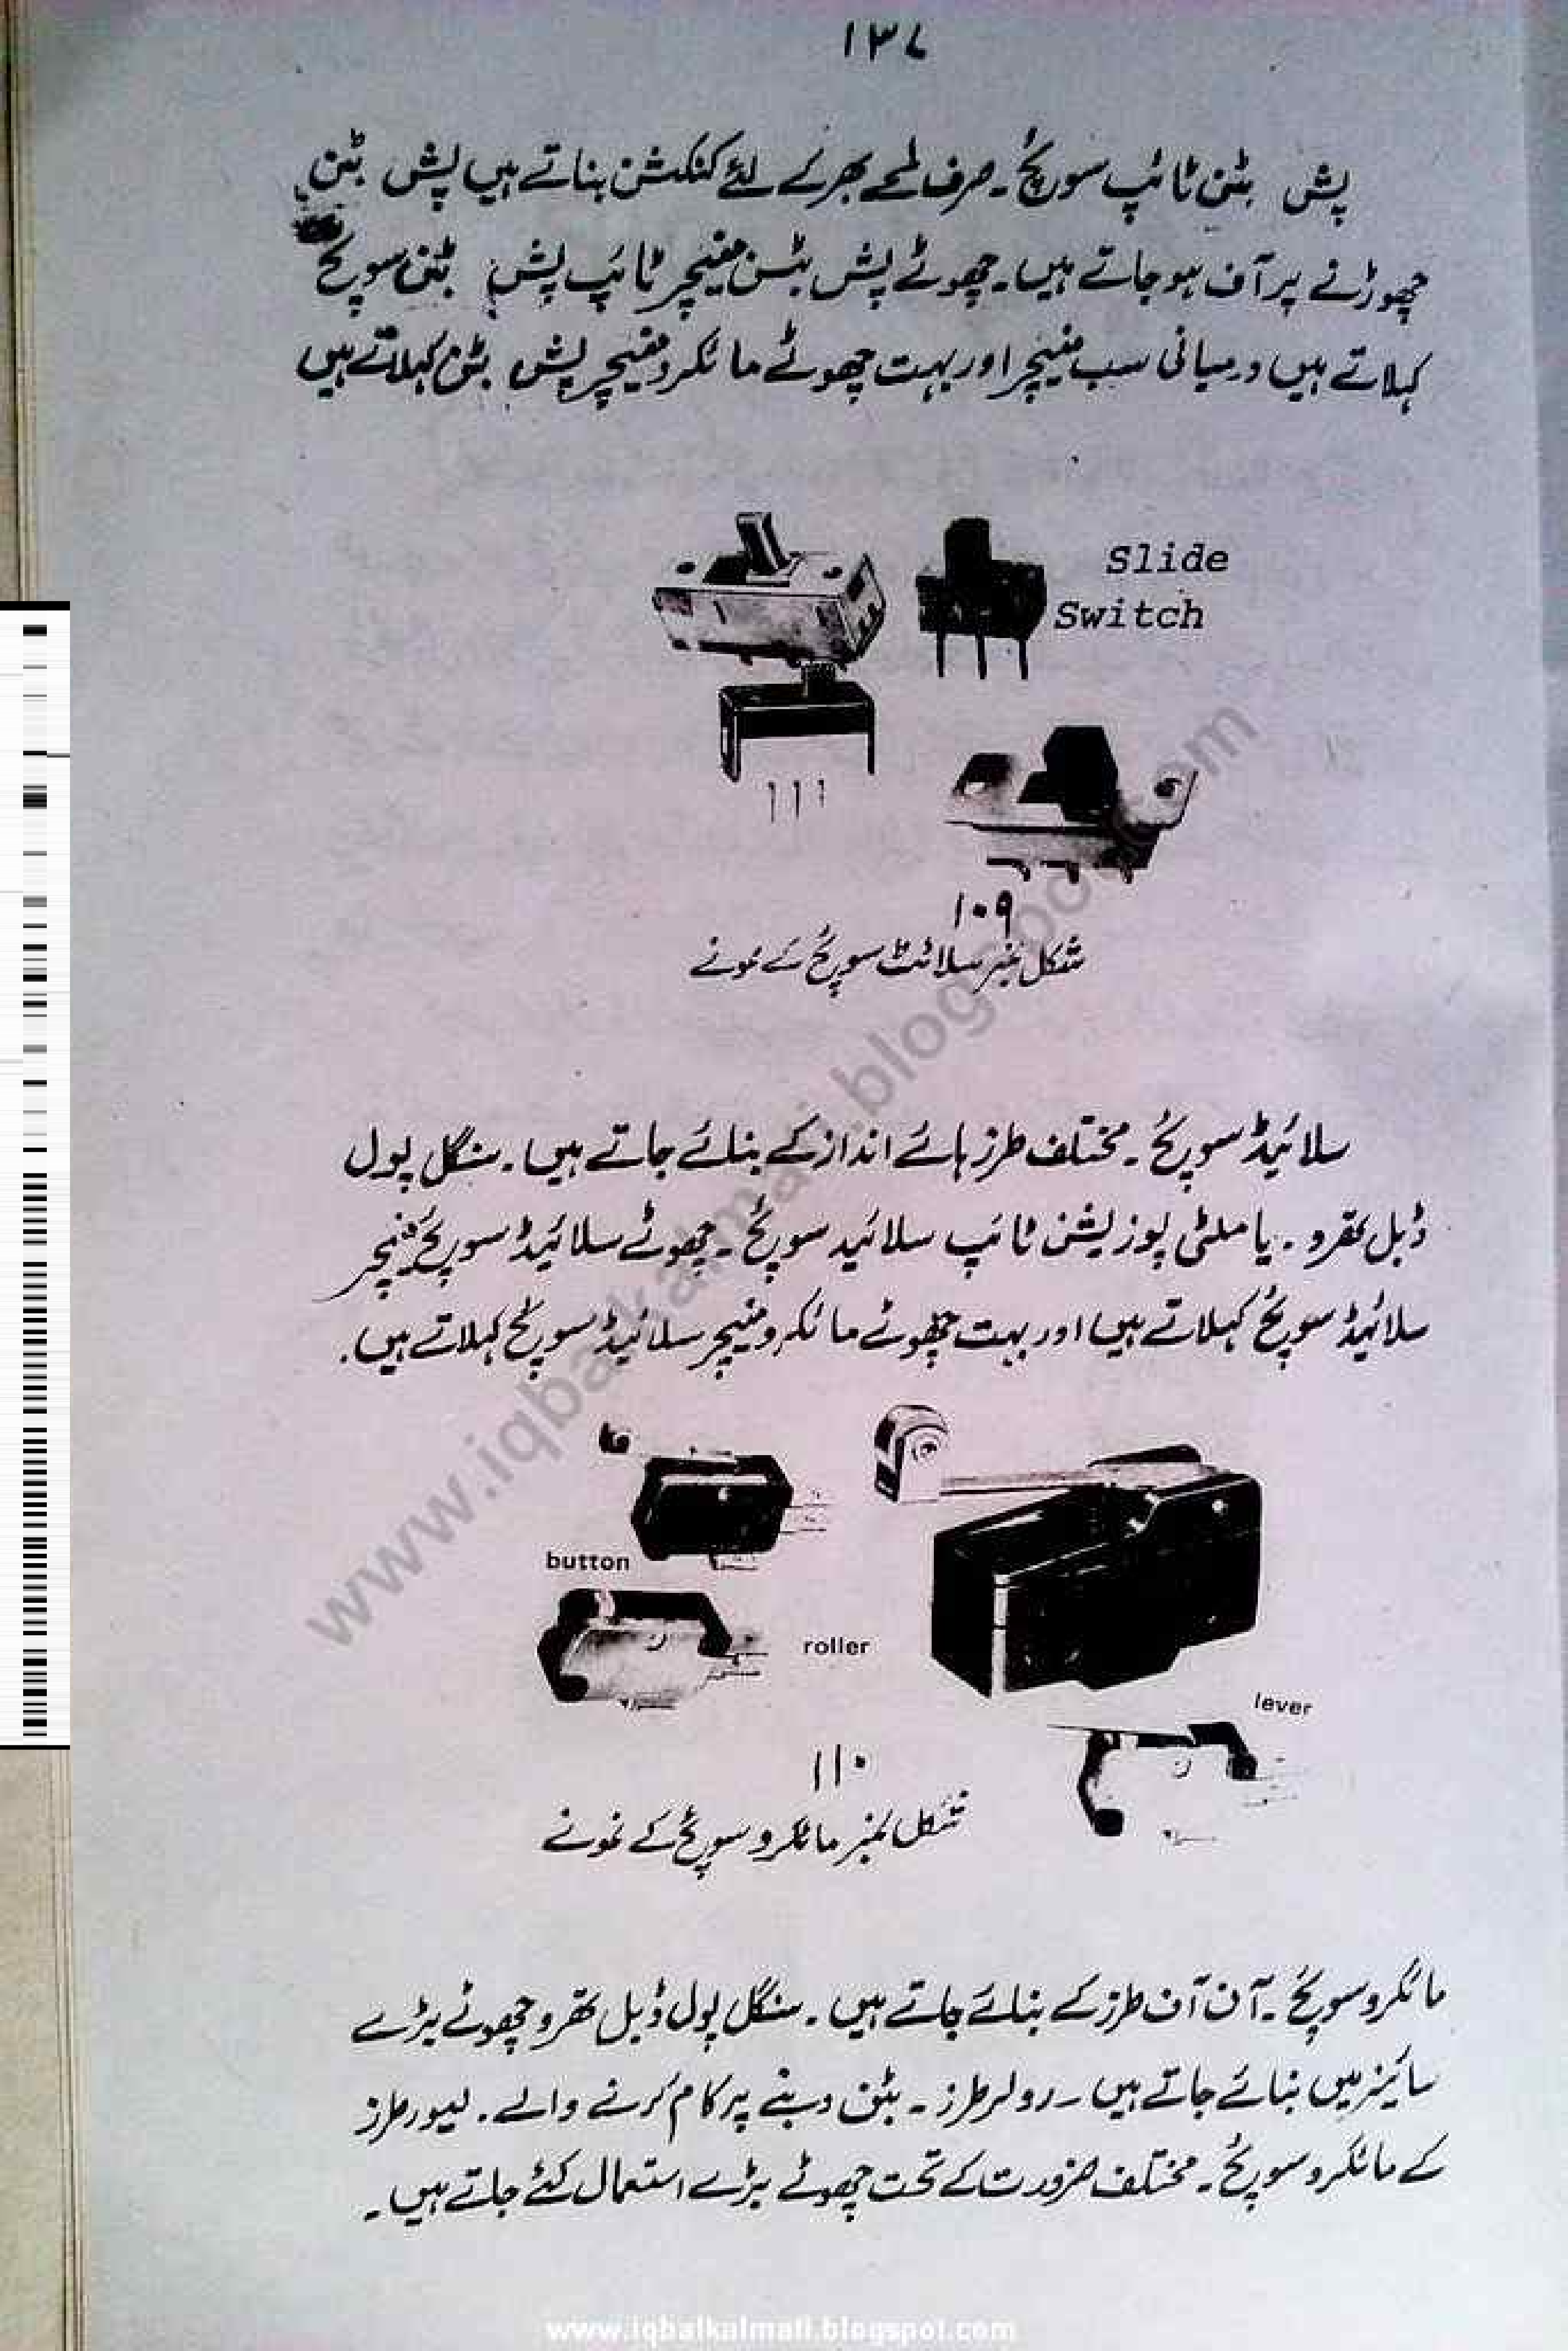 ۱۳۷
پش بٹن ٹائپ سوئچ۔ صرف لمحے بھر کے لئے کنکشن بناتے ہیں پش بٹن
چھوڑنے پر آف ہو جاتے ہیں۔ چھوٹے پش بٹن منیچر ٹائپ پش بٹن سوئچ
کہلاتے ہیں درمیانی سب منیچر اور بہت چھوٹے مائکرو منیچر پش بٹن کہلاتے ہیں
Slide
Switch
۱۰۹
شکل نمبر سلائٹ سوئچ کے نمونے
سلائیڈ سوئچ۔ مختلف طرز ہائے انداز کے بنائے جاتے ہیں۔ سنگل پول
ڈبل تھرو۔ یا ملٹی پوزیشن ٹائپ سلائید سوئچ۔ چھوٹے سلائیڈ سوئچ منیچر
سلائیڈ سوئچ کہلاتے ہیں اور بہت چھوٹے مائکرو منیچر سلائیڈ سوئچ کہلاتے ہیں۔
button
roller
lever
۱۱۰
شکل نمبر مائکرو سوئچ کے نمونے
مائکرو سوئچ۔ آن آف طرز کے بنائے جاتے ہیں۔ سنگل پول ڈبل تھرو چھوٹے بڑے
سائیز میں بنائے جاتے ہیں۔ رولر طرز۔ بٹن دبنے پر کام کرنے والے۔ لیور طرز
کے مائکرو سوئچ۔ مختلف ضرورت کے تحت چھوٹے بڑے استعمال کئے جاتے ہیں۔
www.iqbalkalmati.blogspot.com
www.iqbalkalmati.blogspot.com